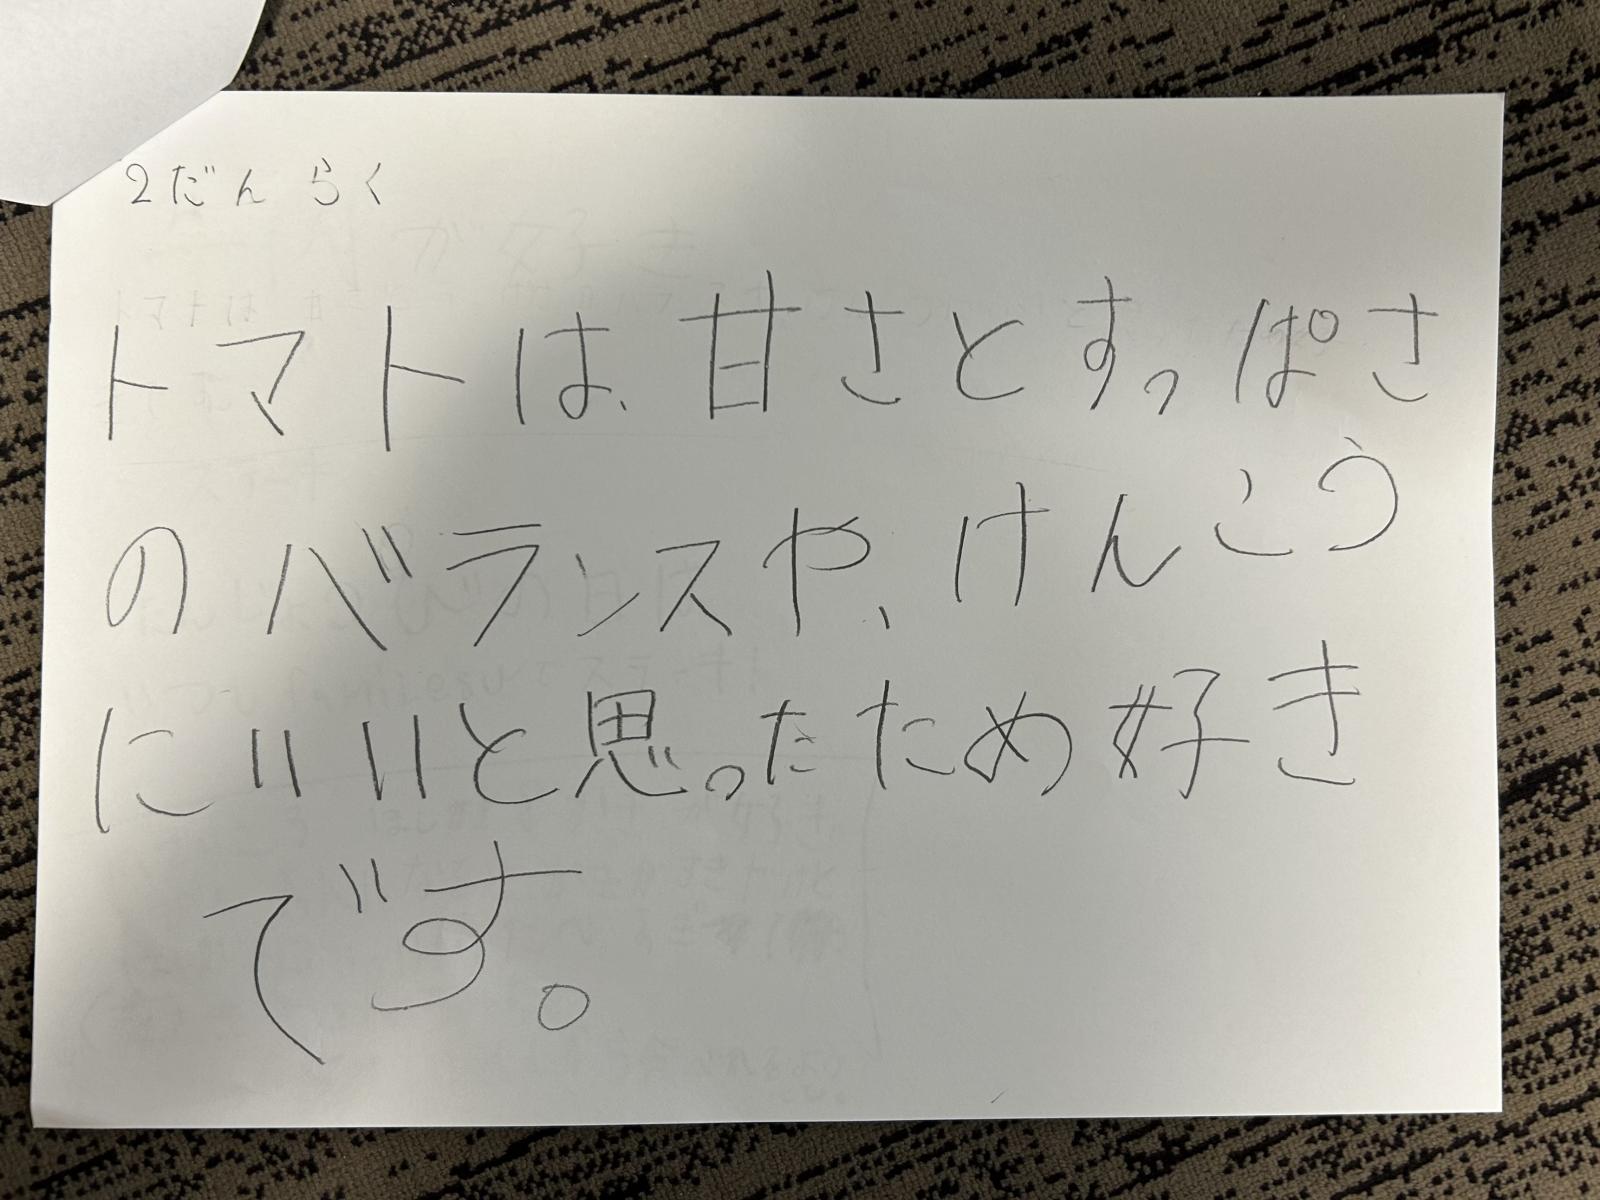 2だんらく
トマトは、甘さとすっぱさ
のバランスや、けんこう
にいいと思ったため好き
です。